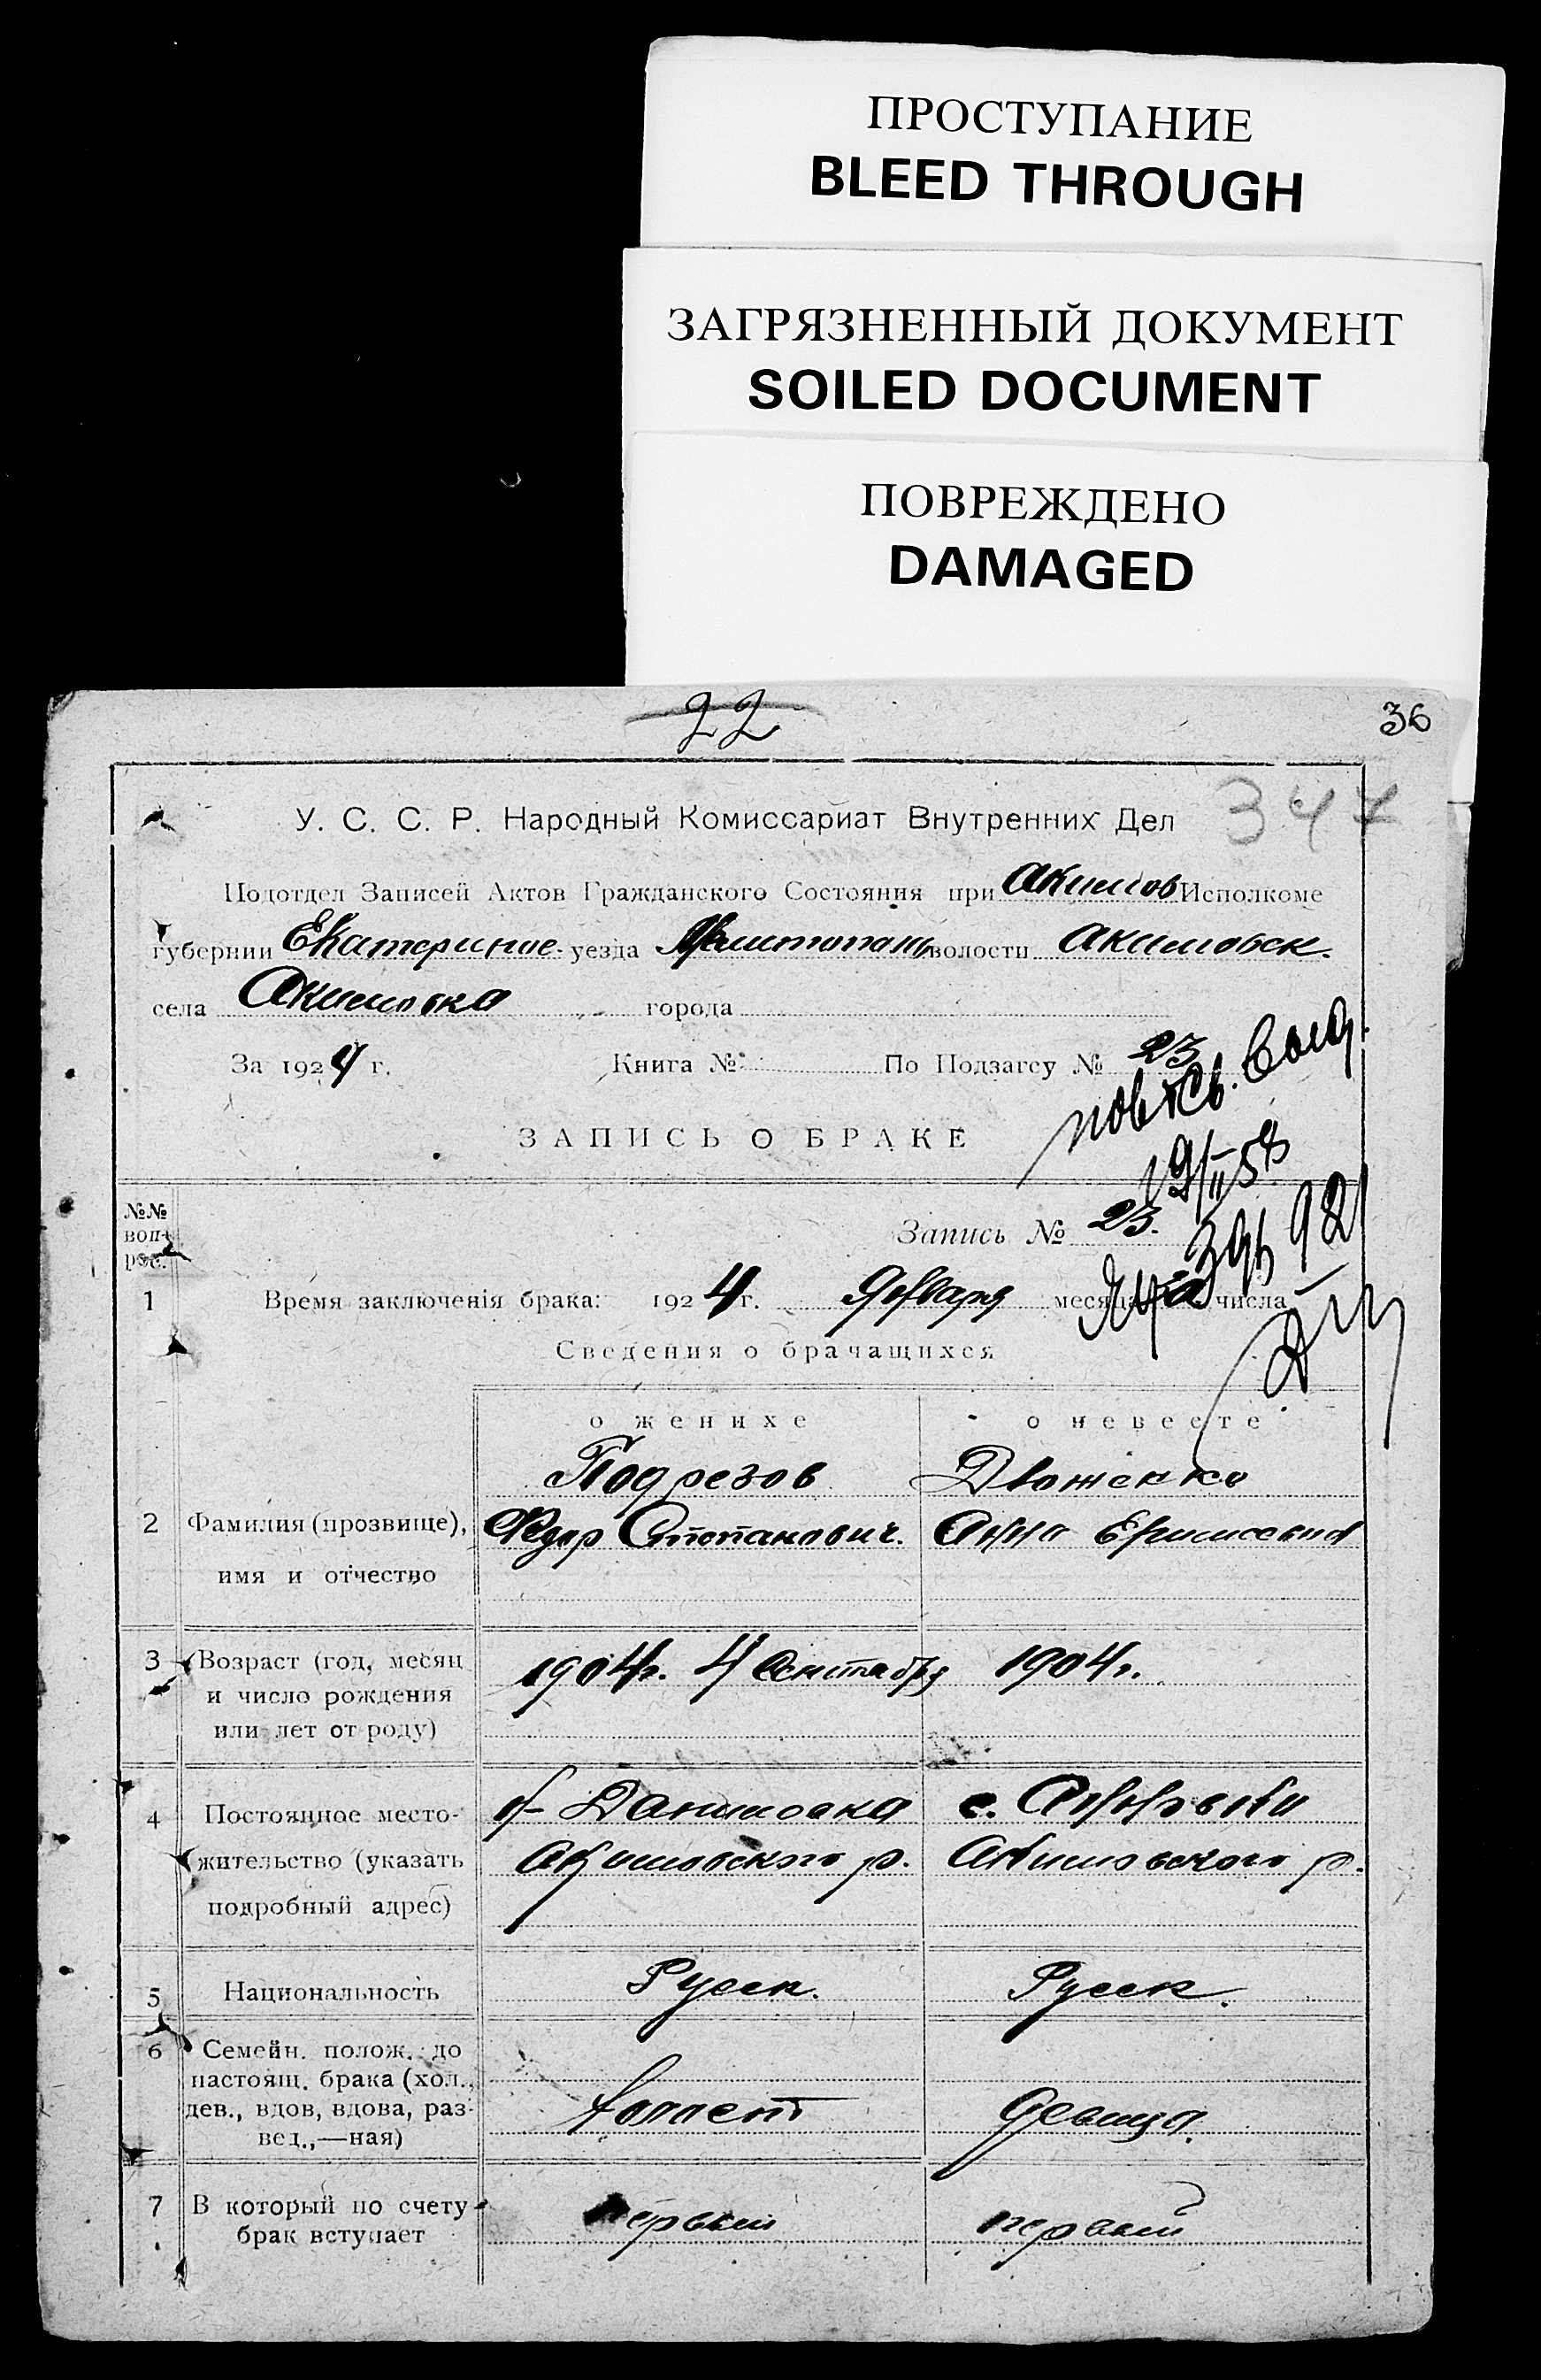 ПРОСТУПАНИЕ
BLEED THROUGH
ЗАГРЯЗНЕННЫЙ ДОКУМЕНТ
SOILED DOCUMENT
ПОВРЕЖДЕНО
DAMAGED
22
36
У. С. С. Р. Народный Комиссариат Внутренних Дел
Подотдел Записей Актов Гражданского Состояния при Акимов Исполкоме
губернии Екатерине уезда волости Акимовск.
села Акимовка города
За 1924 г. Книга № По Подзагсу № 23
повт св. выд.
ЗАПИСЬ О БРАКЕ
№№
воп-
рос.
Запись № 23.
1 Время заключенія брака: 1924 г. Января месяца числа
Сведения о брачащихся
о женихе о невесте
Подрезов
2 Фамилия (прозвище), Федор Степанович. Анна
имя и отчество
3 Возраст (год, месяц 1904г. 4 Сентября 1904г.
и число рождения
или лет от роду)
4 Постоянное место- Даниловка с.
жительство (указать Акимовского р. Акимовского р.
подробный адрес)
5 Национальность Русск. Русск.
6 Семейн. полож. до
настоящ. брака (хол.,
дев., вдов, вдова, раз- холост девица.
вед.,—ная)
7 В который по счету первый первый
брак вступает